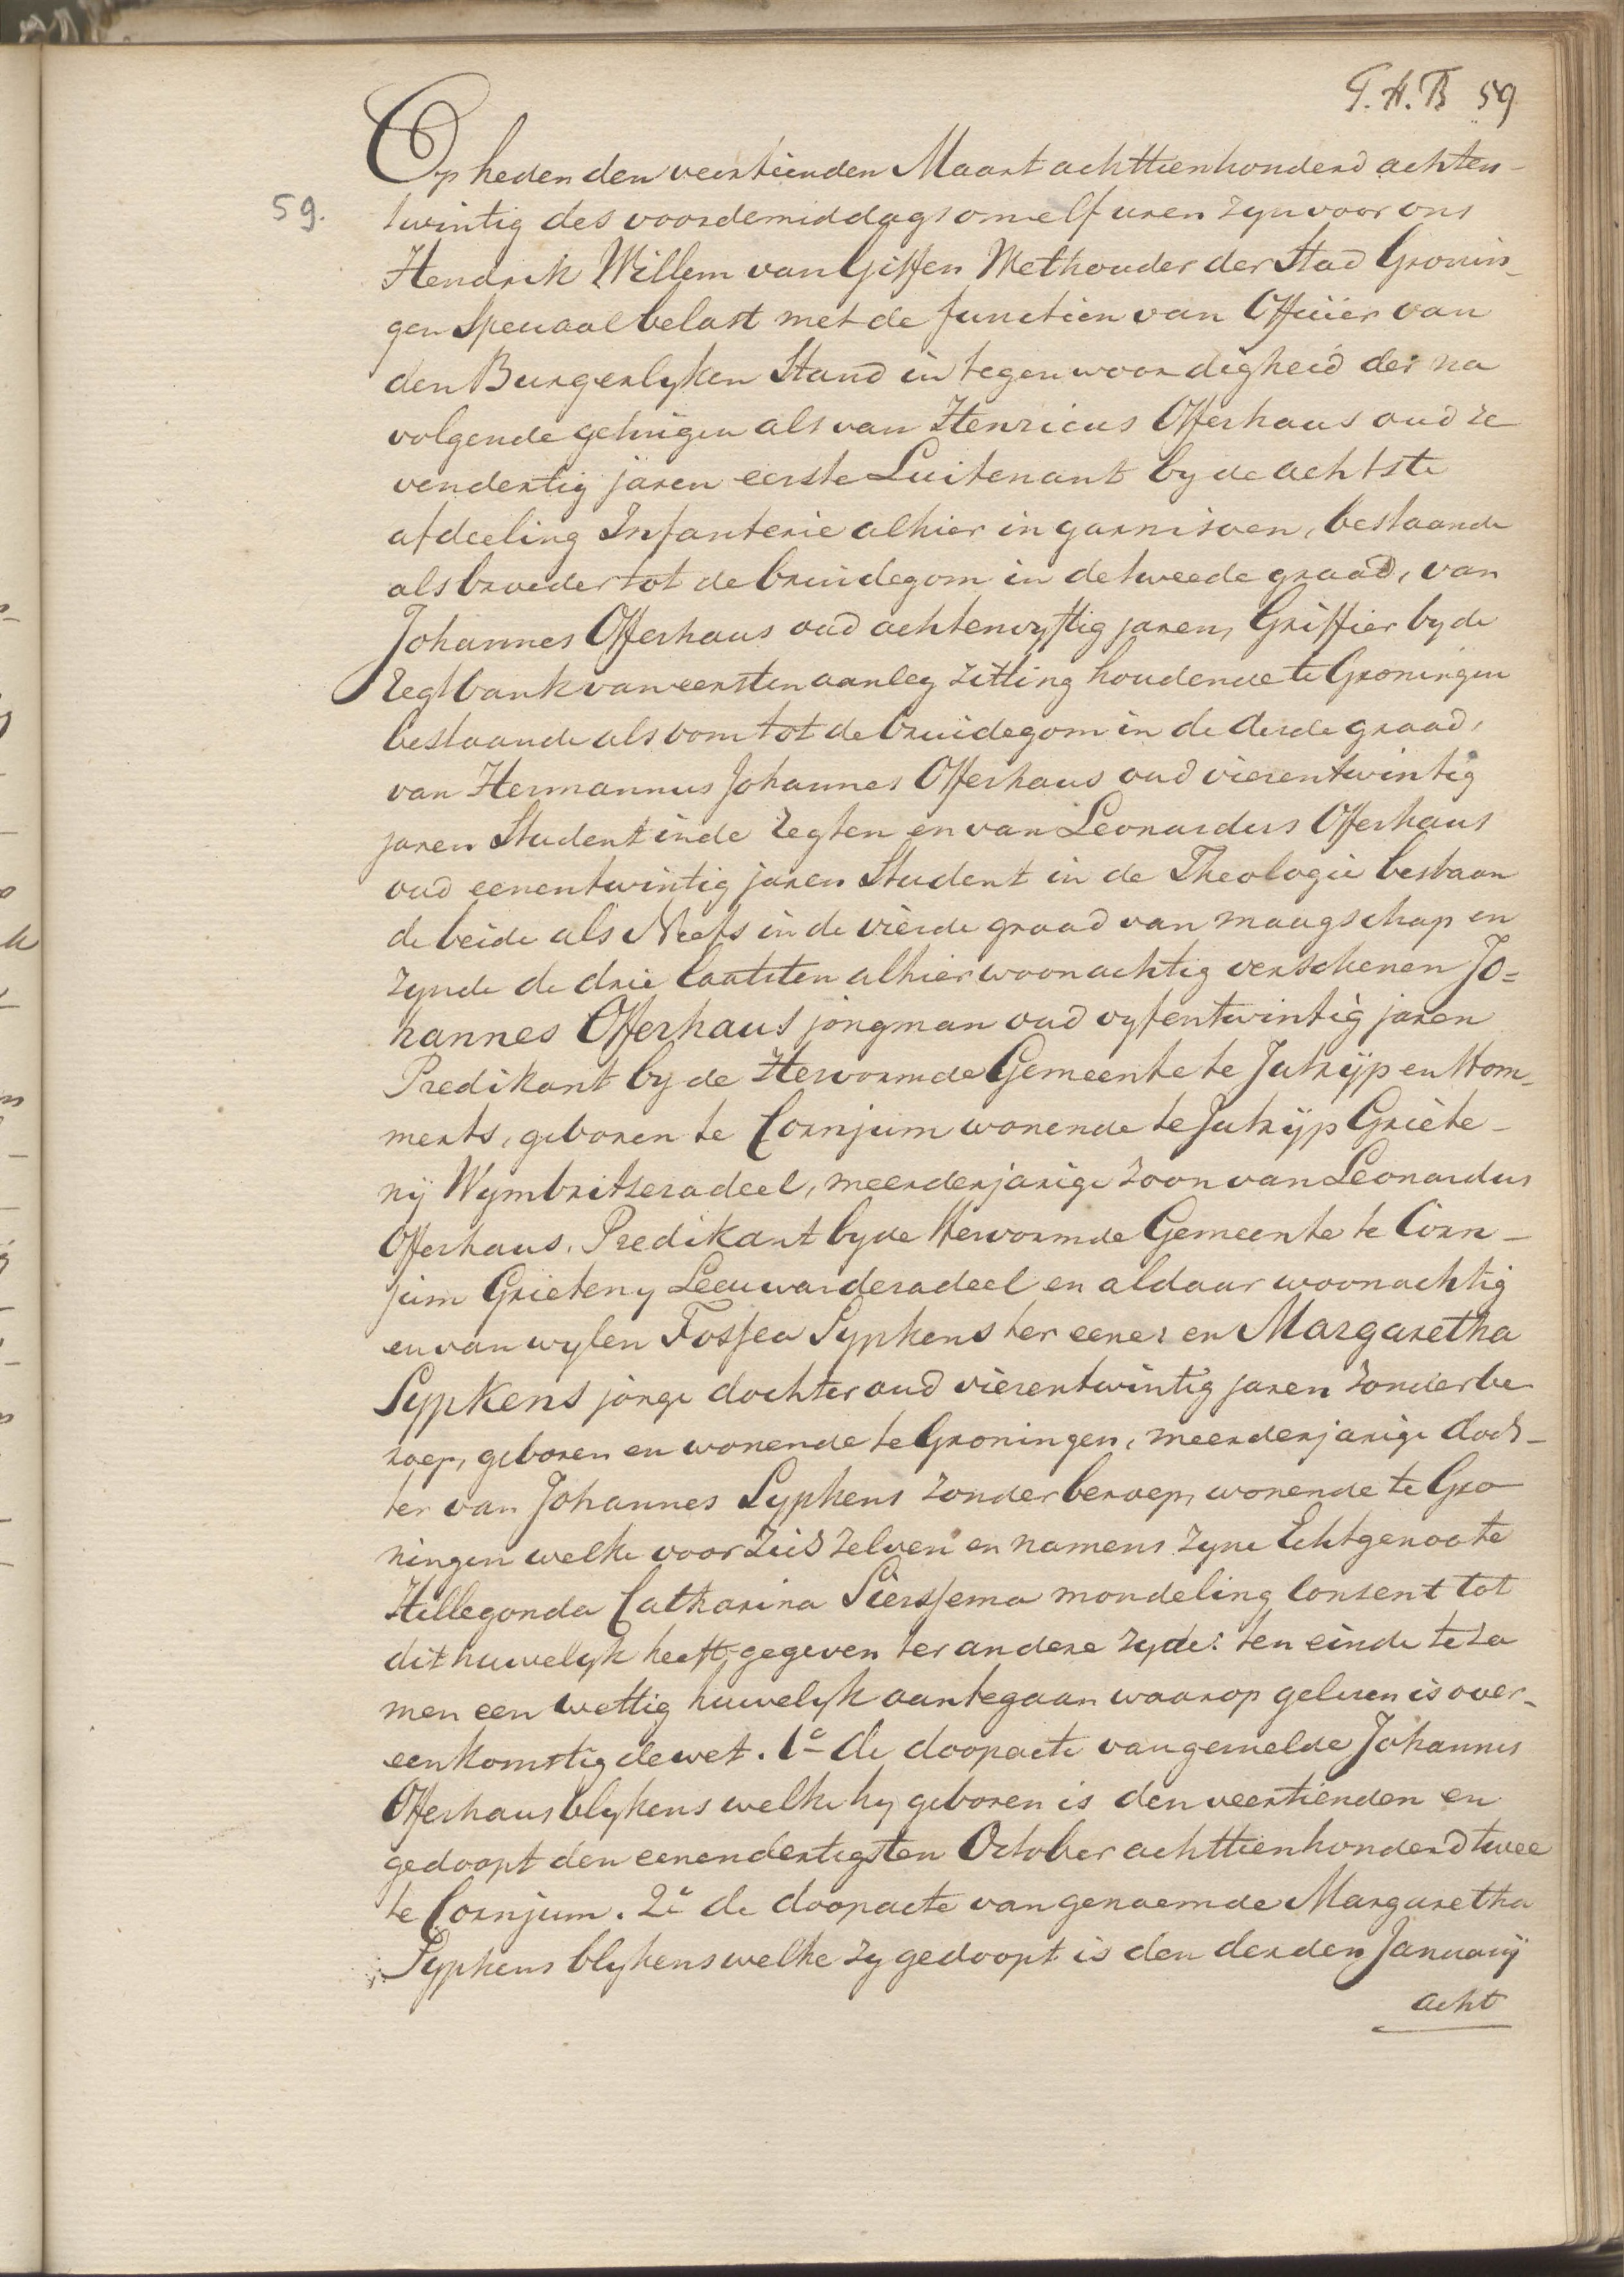 T. H. B 59
Op heden den veertienden Maart achttienhonderd achten-
59.
twintig des voordemiddags om elf uren zyn voor ons
Hendrik Willem van Giffen Wethouder der Stad Gronin-
gen Speciaal belast met de functien van Officier van
den Burgerlyken Stand in tegenwoordigheid der na
volgende getuigen als van Henricus Offerhaus oud ze
vendertig jaren eerste Luitenant by de achtste
afdeeling Infanterie alhier in garnisoen, bestaande
als broeder tot de bruidegom in de tweede graad, van
Johannes Offerhaus oud achtenvyftig jaren, Griffier by de
regtbank van eersten aanleg zitting houdende te Groningen
bestaande als oom tot de bruidegom in de derde graad,
van Hermannus Johannes Offerhaus oud vierentwintig
jaren Student in de regten en van Leonardus Offerhaus
oud eenentwintig jaren Student in de Theologie bestaan
de beide als Neefs in de vierde graad van maagschap en
zynde de drie laatsten alhier woonachtig verschenen Jo=
hannes Offerhaus jongman oud vyfentwintig jaren
Predikant by de Hervormde Gemeente te Jutryp en Hom-
merts, geboren te Cornjum wonende te Jutryp Griete-
nij Wymbritseradeel, meerderjarige zoon van Leonardus
Offerhaus, Predikant by de Hervormde Gemeente te Corn-
jum Grieteny Leeuwarderadeel en aldaar woonachtig
en van wylen Fossea Sypkens ter eener en Margaretha
Sypkens jonge dochter oud vierentwintig jaren zonder be
roep, geboren en wonende te Groningen, meerderjarige doch-
ter van Johannes Sypkens zonder beroep, wonende te Gro
ningen welke voor zich zelven en namens zyne Echtgenoote
Hillegonda Catharina Sierssema mondeling consent tot
dit huwelyk heeft gegeven ter andere zyde: ten einde te za
men een wettig huwelyk aantegaan waarop gelezen is over-
eenkomstig de wet. 1e de doopacte van gemelde Johannes
Offerhaus blykens welke hy geboren is den veertienden en
gedoopt den eenendertigsten October achttienhonderd twee
te Cornjum. 2e de doopacte van genoemde Margaretha
Sypkens blykens welke zy gedoopt is den derden Januarij
acht